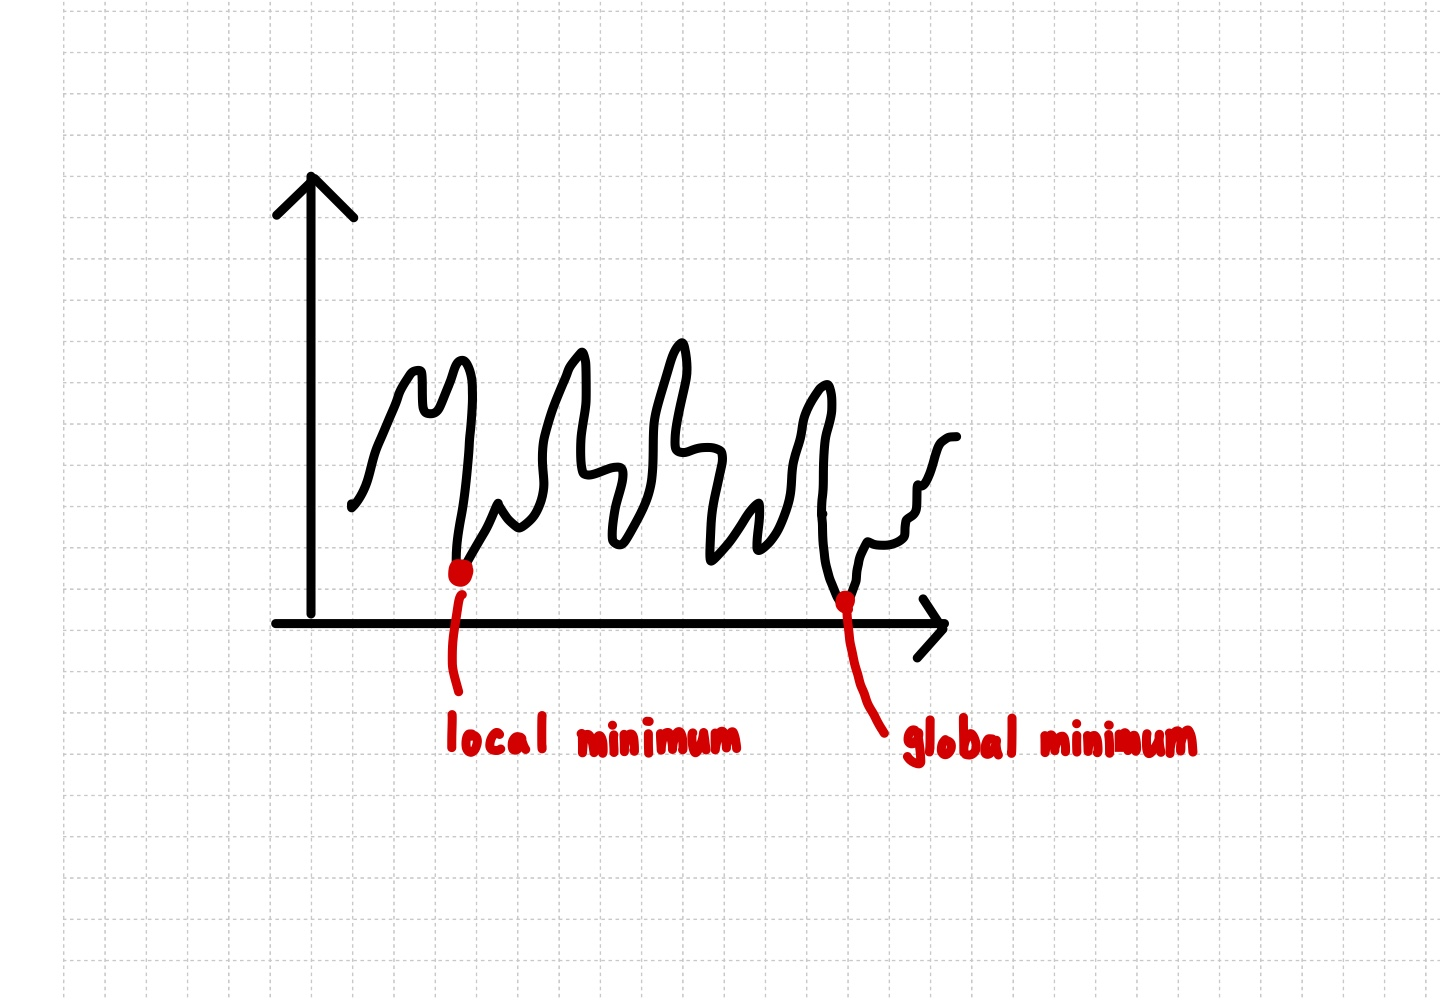 local minimum
global minimum